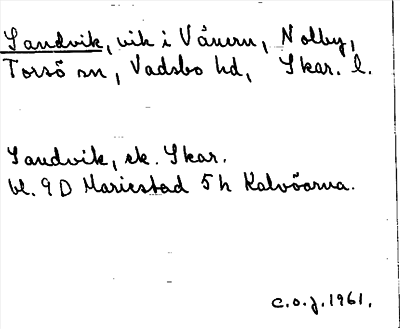 Sandvik, vik i Vänern, Nolby,
Torsö sn, Vadsbo hd, Skar. l.
Sandvik, ek. Skar.
bl. 9 D Mariestad 5 h Kalvöarna.
c.o.j. 1961.